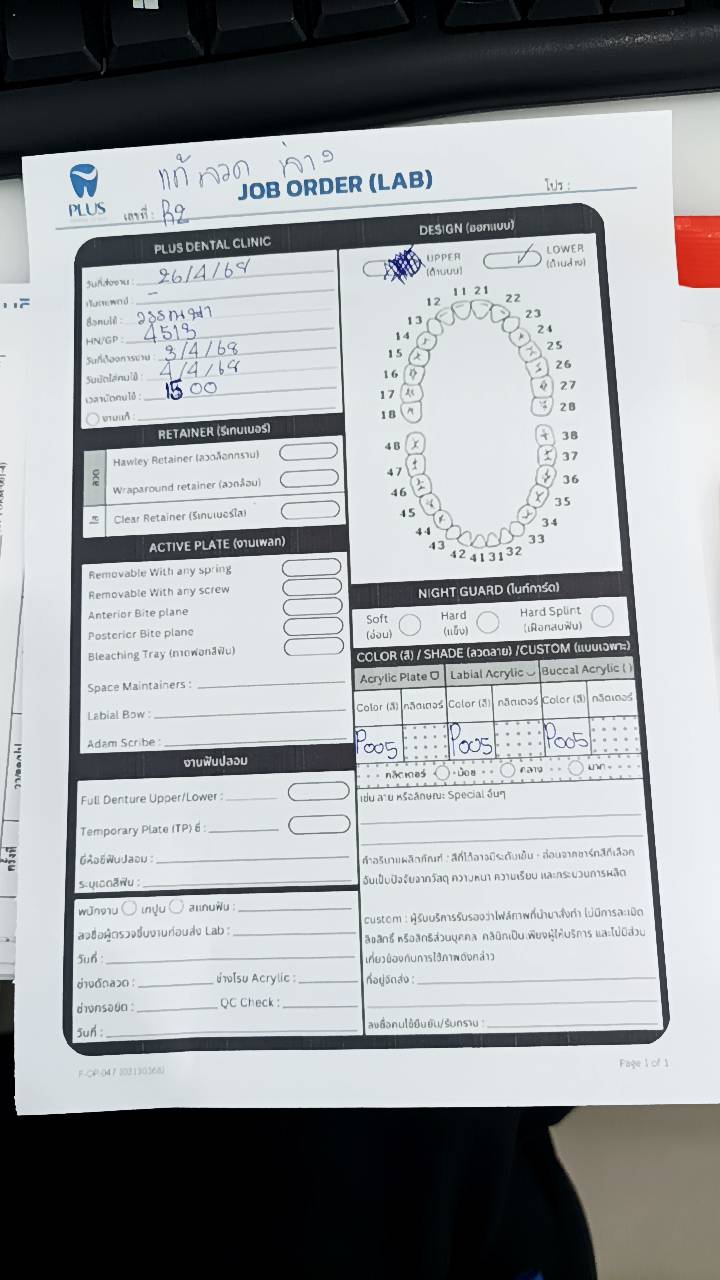 แก้ ลวด ล่าง
PLUS
JOB ORDER (LAB)
โปร :
เลขที่ : R2
PLUS DENTAL CLINIC
วันที่ส่งงาน : 26/4/68
ทันตแพทย์ : -
ชื่อคนไข้ :
HN/GP : 4513
วันที่ต้องการงาน : 3/4/68
วันนัดใส่คนไข้ : 4/4/68
เวลานัดคนไข้ : 1500
งานแก้ :
RETAINER (รีเทนเนอร์)
ลวด
Hawley Retainer (ลวดล็อกกราม)
Wraparound retainer (ลวดล้อม)
ใส
Clear Retainer (รีเทนเนอร์ใส)
ACTIVE PLATE (งานเพลท)
Removable With any spring
Removable With any screw
Anterior Bite plane
Posterior Bite plane
Bleaching Tray (ถาดฟอกสีฟัน)
Space Maintainers :
Labial Bow :
Adam Scribe :
งานฟันปลอม
Full Denture Upper/Lower :
Temporary Plate (TP) ซี่ :
ยี่ห้อซี่ฟันปลอม :
ระบุเฉดสีฟัน :
พนักงาน เทปูน สแกนฟัน :
ลงชื่อผู้ตรวจชิ้นงานก่อนส่ง Lab :
วันที่ :
ช่างดัดลวด : ช่างโรย Acrylic :
ช่างกรอขัด : QC Check :
วันที่ :
DESIGN (ออกแบบ)
UPPER (ด้านบน)
LOWER (ด้านล่าง)
11 21
12 22
13 23
14 24
15 25
16 26
17 27
18 28
48 38
47 37
46 36
45 35
44 34
43 33
42 41 31 32
NIGHT GUARD (ไนท์การ์ด)
Soft (อ่อน)
Hard (แข็ง)
Hard Splint (เฝือกสบฟัน)
COLOR (สี) / SHADE (ลวดลาย) /CUSTOM (แบบเฉพาะ)
Acrylic Plate Labial Acrylic Buccal Acrylic ( )
Color (สี) กลิตเตอร์ Color (สี) กลิตเตอร์ Color (สี) กลิตเตอร์
P005 P005 P005
กลิตเตอร์ น้อย กลาง มาก
เช่น ลาย หรือลักษณะ Special อื่นๆ
คำอธิบายผลิตภัณฑ์ : สีที่ได้อาจมีระดับเข้ม - อ่อนจากชาร์ทสีที่เลือก
อันเป็นปัจจัยจากวัสดุ ความหนา ความเรียบ และกระบวนการผลิต
custom : ผู้รับบริการรับรองว่าไฟล์ภาพที่นำมาสั่งทำ ไม่มีการละเมิด
ลิขสิทธิ์ หรือสิทธิส่วนบุคคล คลินิกเป็นเพียงผู้ให้บริการ และไม่มีส่วน
เกี่ยวข้องกับการใช้ภาพดังกล่าว
ที่อยู่จัดส่ง :
ลงชื่อคนไข้ยืนยัน/รับทราบ :
Page 1 of 1